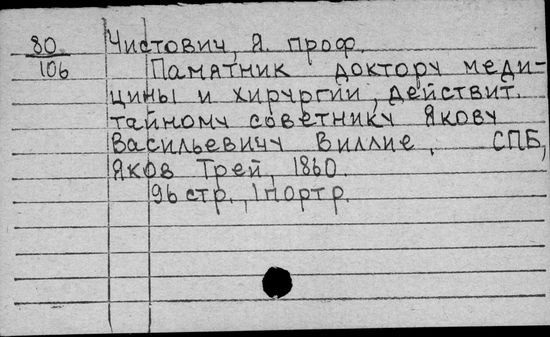 80 Чистович, Я. проф.
106 Памятник доктору меди-
цины и хирургии, действит.
тайному советнику Якову
Васильевичу Виллие, СПБ,
Яков Трей, 1860.
96 стр., 1 портр.